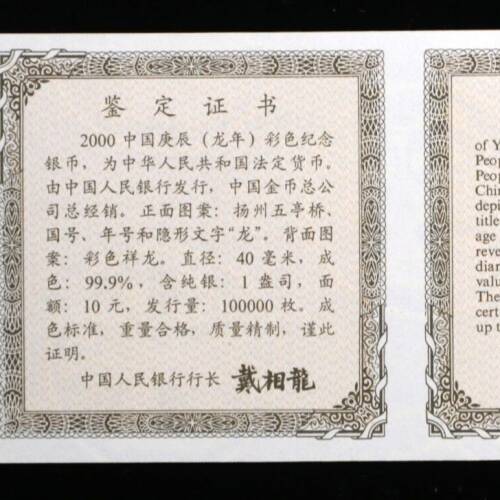 鉴定证书
2000中国庚辰（龙年）彩色纪念
银币，为中华人民共和国法定货币。
由中国人民银行发行，中国金币总公
司总经销。正面图案：扬州五亭桥、
国号、年号和隐形文字“龙”。背面图
案：彩色祥龙。直径：40毫米，成
色：99.9%，含纯银：1盎司，面
额：10元，发行量：100000枚。成
色标准，重量合格，质量精制，谨此
证明。
中国人民银行行长 戴相龍
of Y
Peop
Peop
Chi
depi
title
age
reve
diar
valu
The
cert
up t